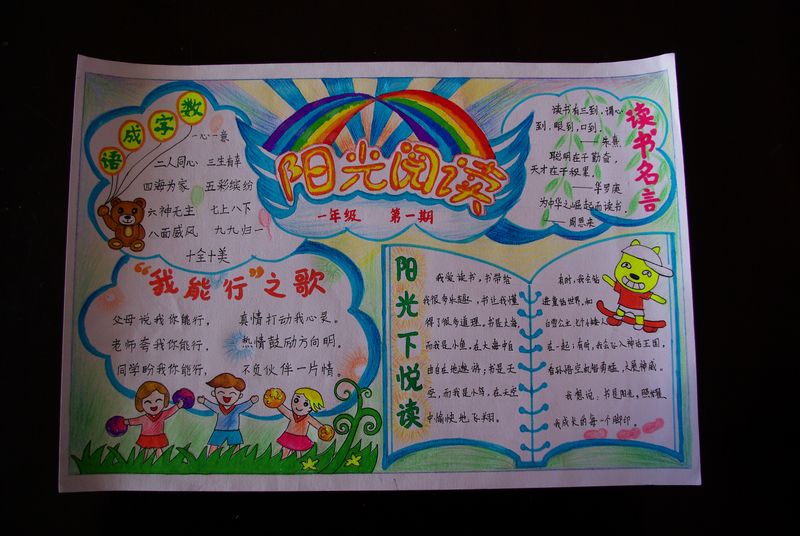 数字成语
一心一意
二人同心 三生有幸
四海为家 五彩缤纷
六神无主 七上八下
八面威风 九九归一
十全十美
阳光阅读
一年级 第一期
读书名言
读书有三到，谓心
到，眼到，口到。
——朱熹
聪明在于勤奋，
天才在于积累。
——华罗庚
为中华之崛起而读书。
——周恩来
“我能行”之歌
父母说我你能行， 真情打动我心灵。
老师夸我你能行， 热情鼓励方向明。
同学盼我你能行， 不负伙伴一片情。
阳光下悦读
我爱读书，书带给
我很多乐趣，书让我懂
得了很多道理。书是大海
而我是小鱼，在大海中自
由自在地遨游；书是天
空，而我是小鸟，在天空
中愉快地飞翔。
有时，我会钻
进童话世界，和
白雪公主、七个小矮人
在一起；有时，我会让入神话王国，
看孙悟空机智勇猛，大展神威。
我想说：书是阳光，照耀
我成长的每一个脚印。